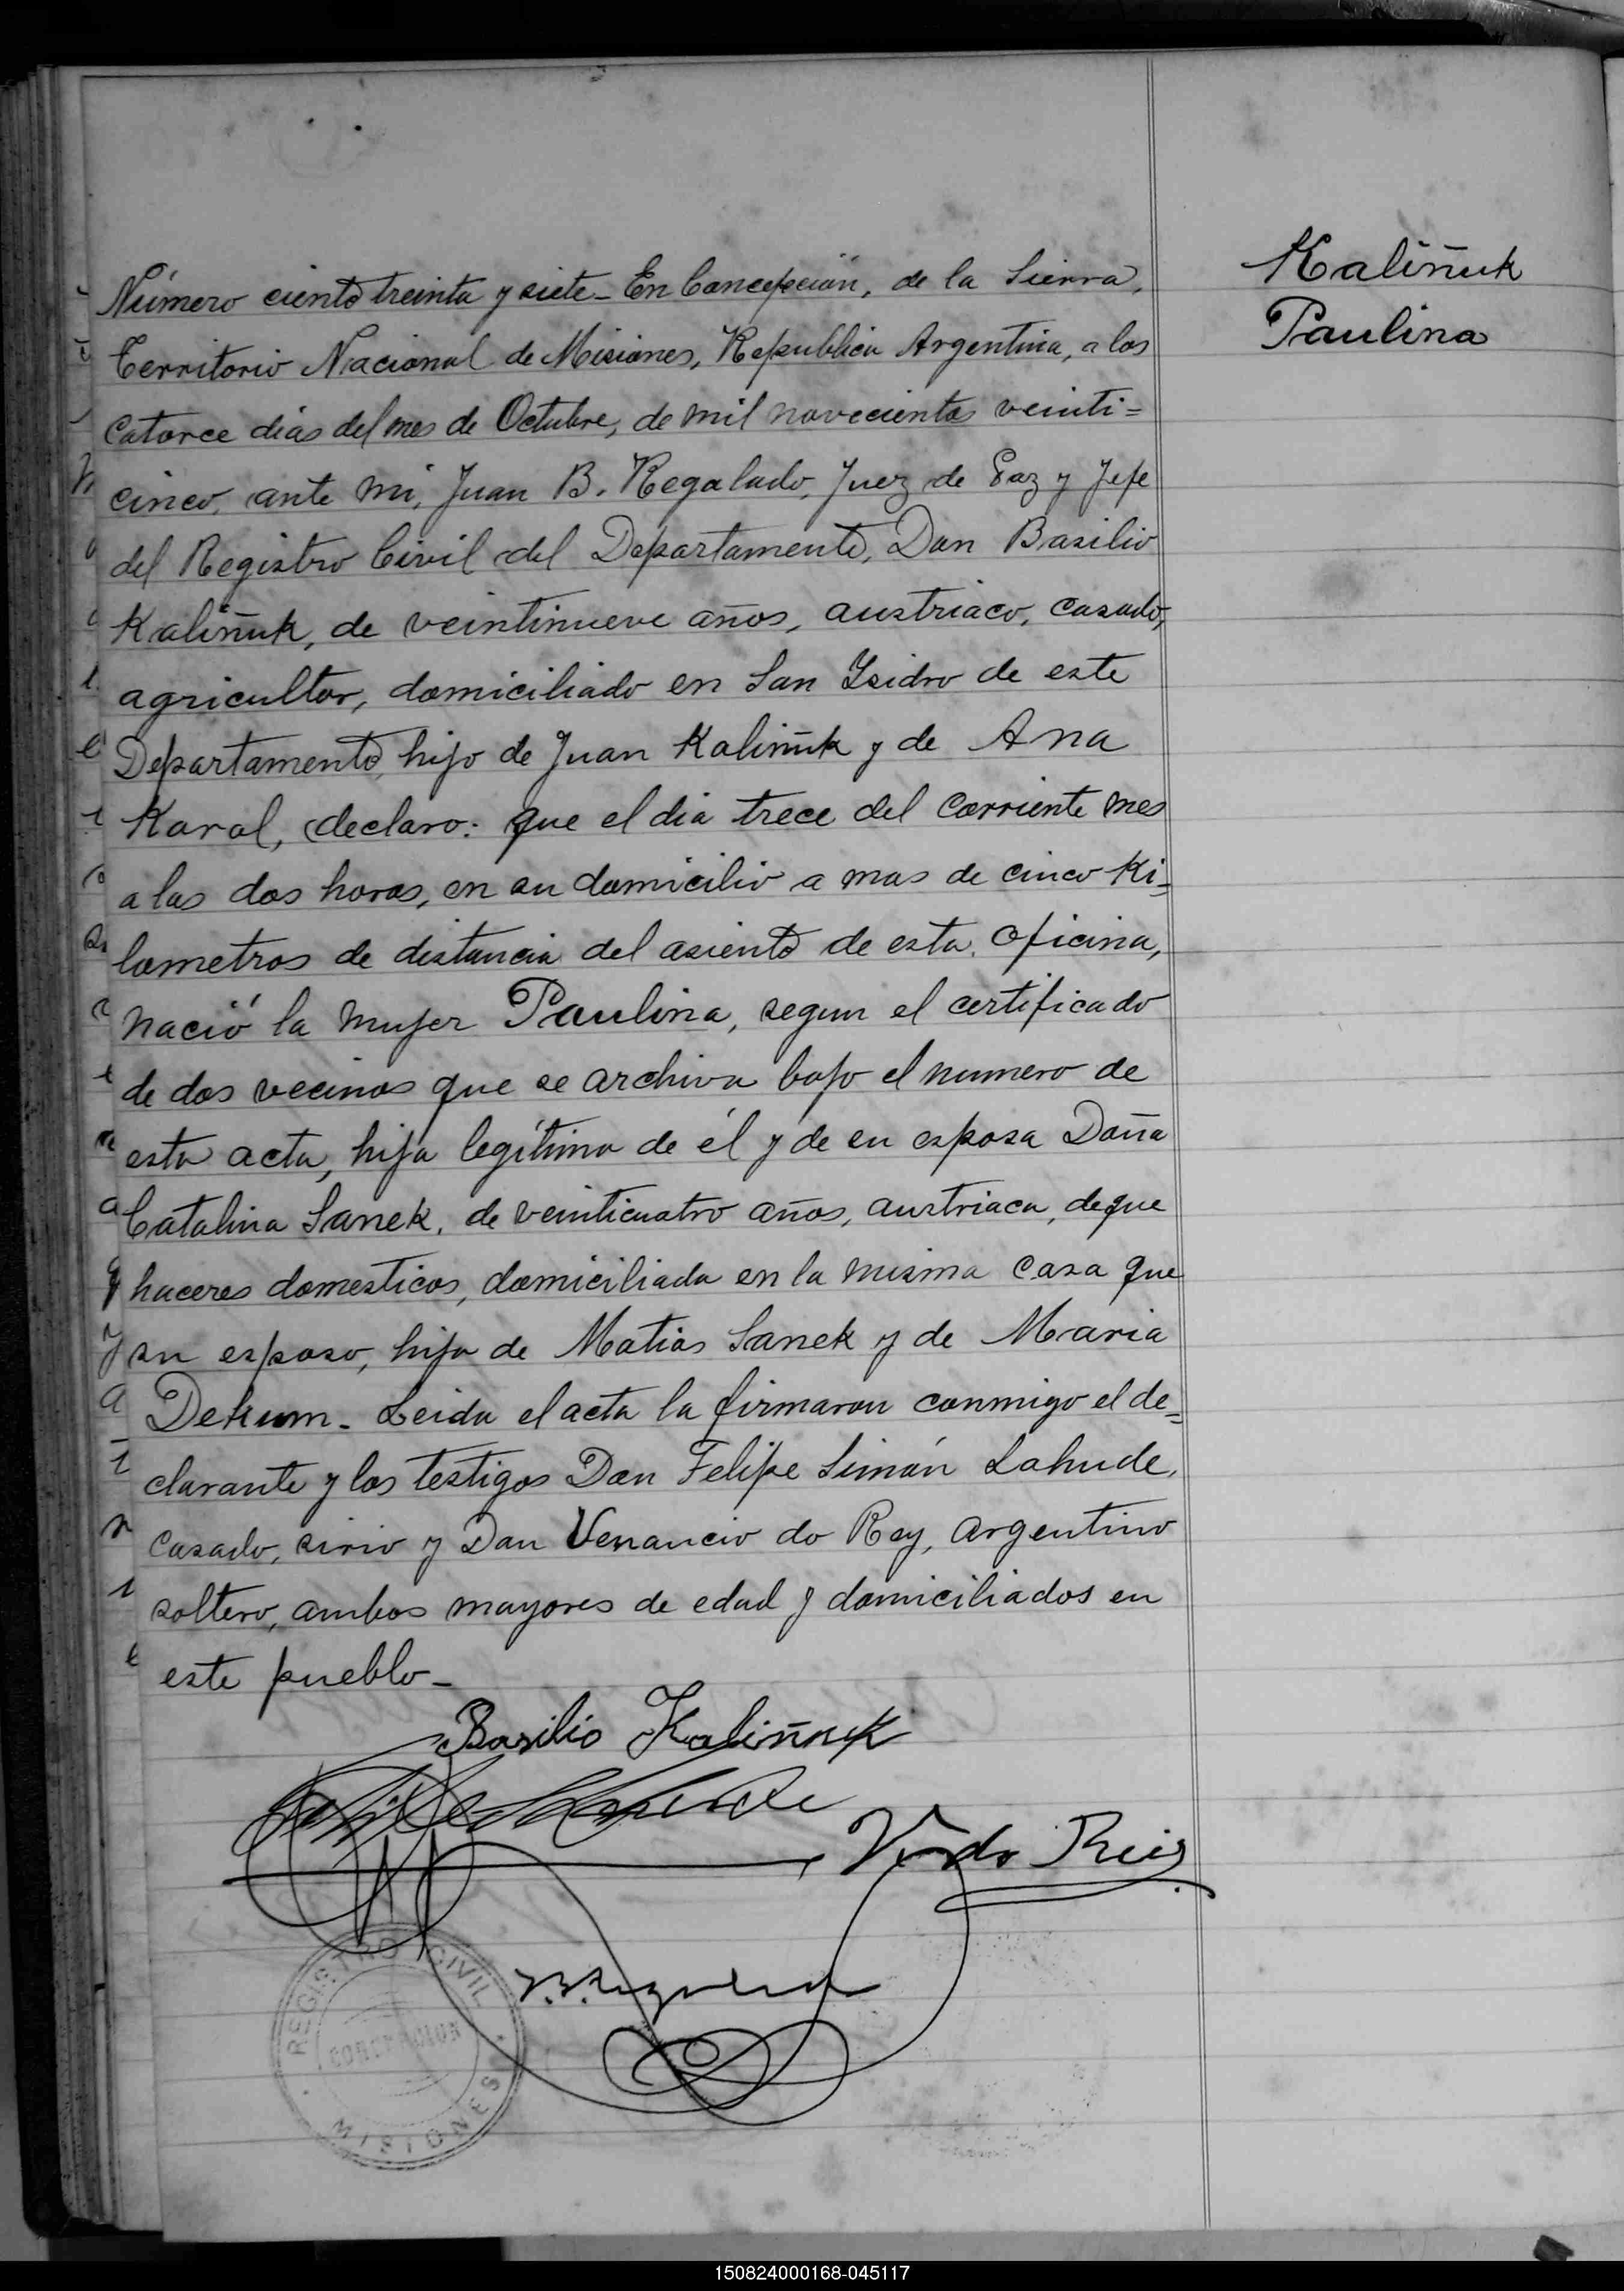 Kaliñuk
Paulina
Número ciento treinta y siete - En Concepción, de la Sierra,
Territorio Nacional de Misiones, Republica Argentina, a los
catorce dias del mes de Octubre, de mil novecientos veinti=
cinco, ante mi, Juan B. Regalado, Juez de Paz y Jefe
del Registro Civil del Departamento, Don Basilio
Kaliñuk, de veintinueve años, austriaco, casado,
agricultor, domiciliado en San Isidro de este
Departamento, hijo de Juan Kaliñuk y de Ana
Karal, declaro: que el dia trece del corriente mes
a las dos horas, en su domicilio a mas de cinco ki=
lometros de distancia del asiento de esta oficina,
nació la mujer Paulina, segun el certificado
de dos vecinos que se archiva bajo el numero de
esta acta, hija legítima de él y de su esposa Doña
Catalina Sanek, de veinticuatro años, austriaca, de que
haceres domesticos, domiciliada en la misma casa que
su esposo, hija de Matias Sanek y de Maria
Dekum - Leida el acta la firmaron conmigo el de=
clarante y los testigos Don Felipe Simón Lahude,
casado, sirio y Don Venancio do Rey, argentino
soltero, ambos mayores de edad y domiciliados en
este pueblo -
Basilio Kaliñuk
V. do Reis
REGISTRO CIVIL
CONCEPCION
MISIONES
150824000168-045117